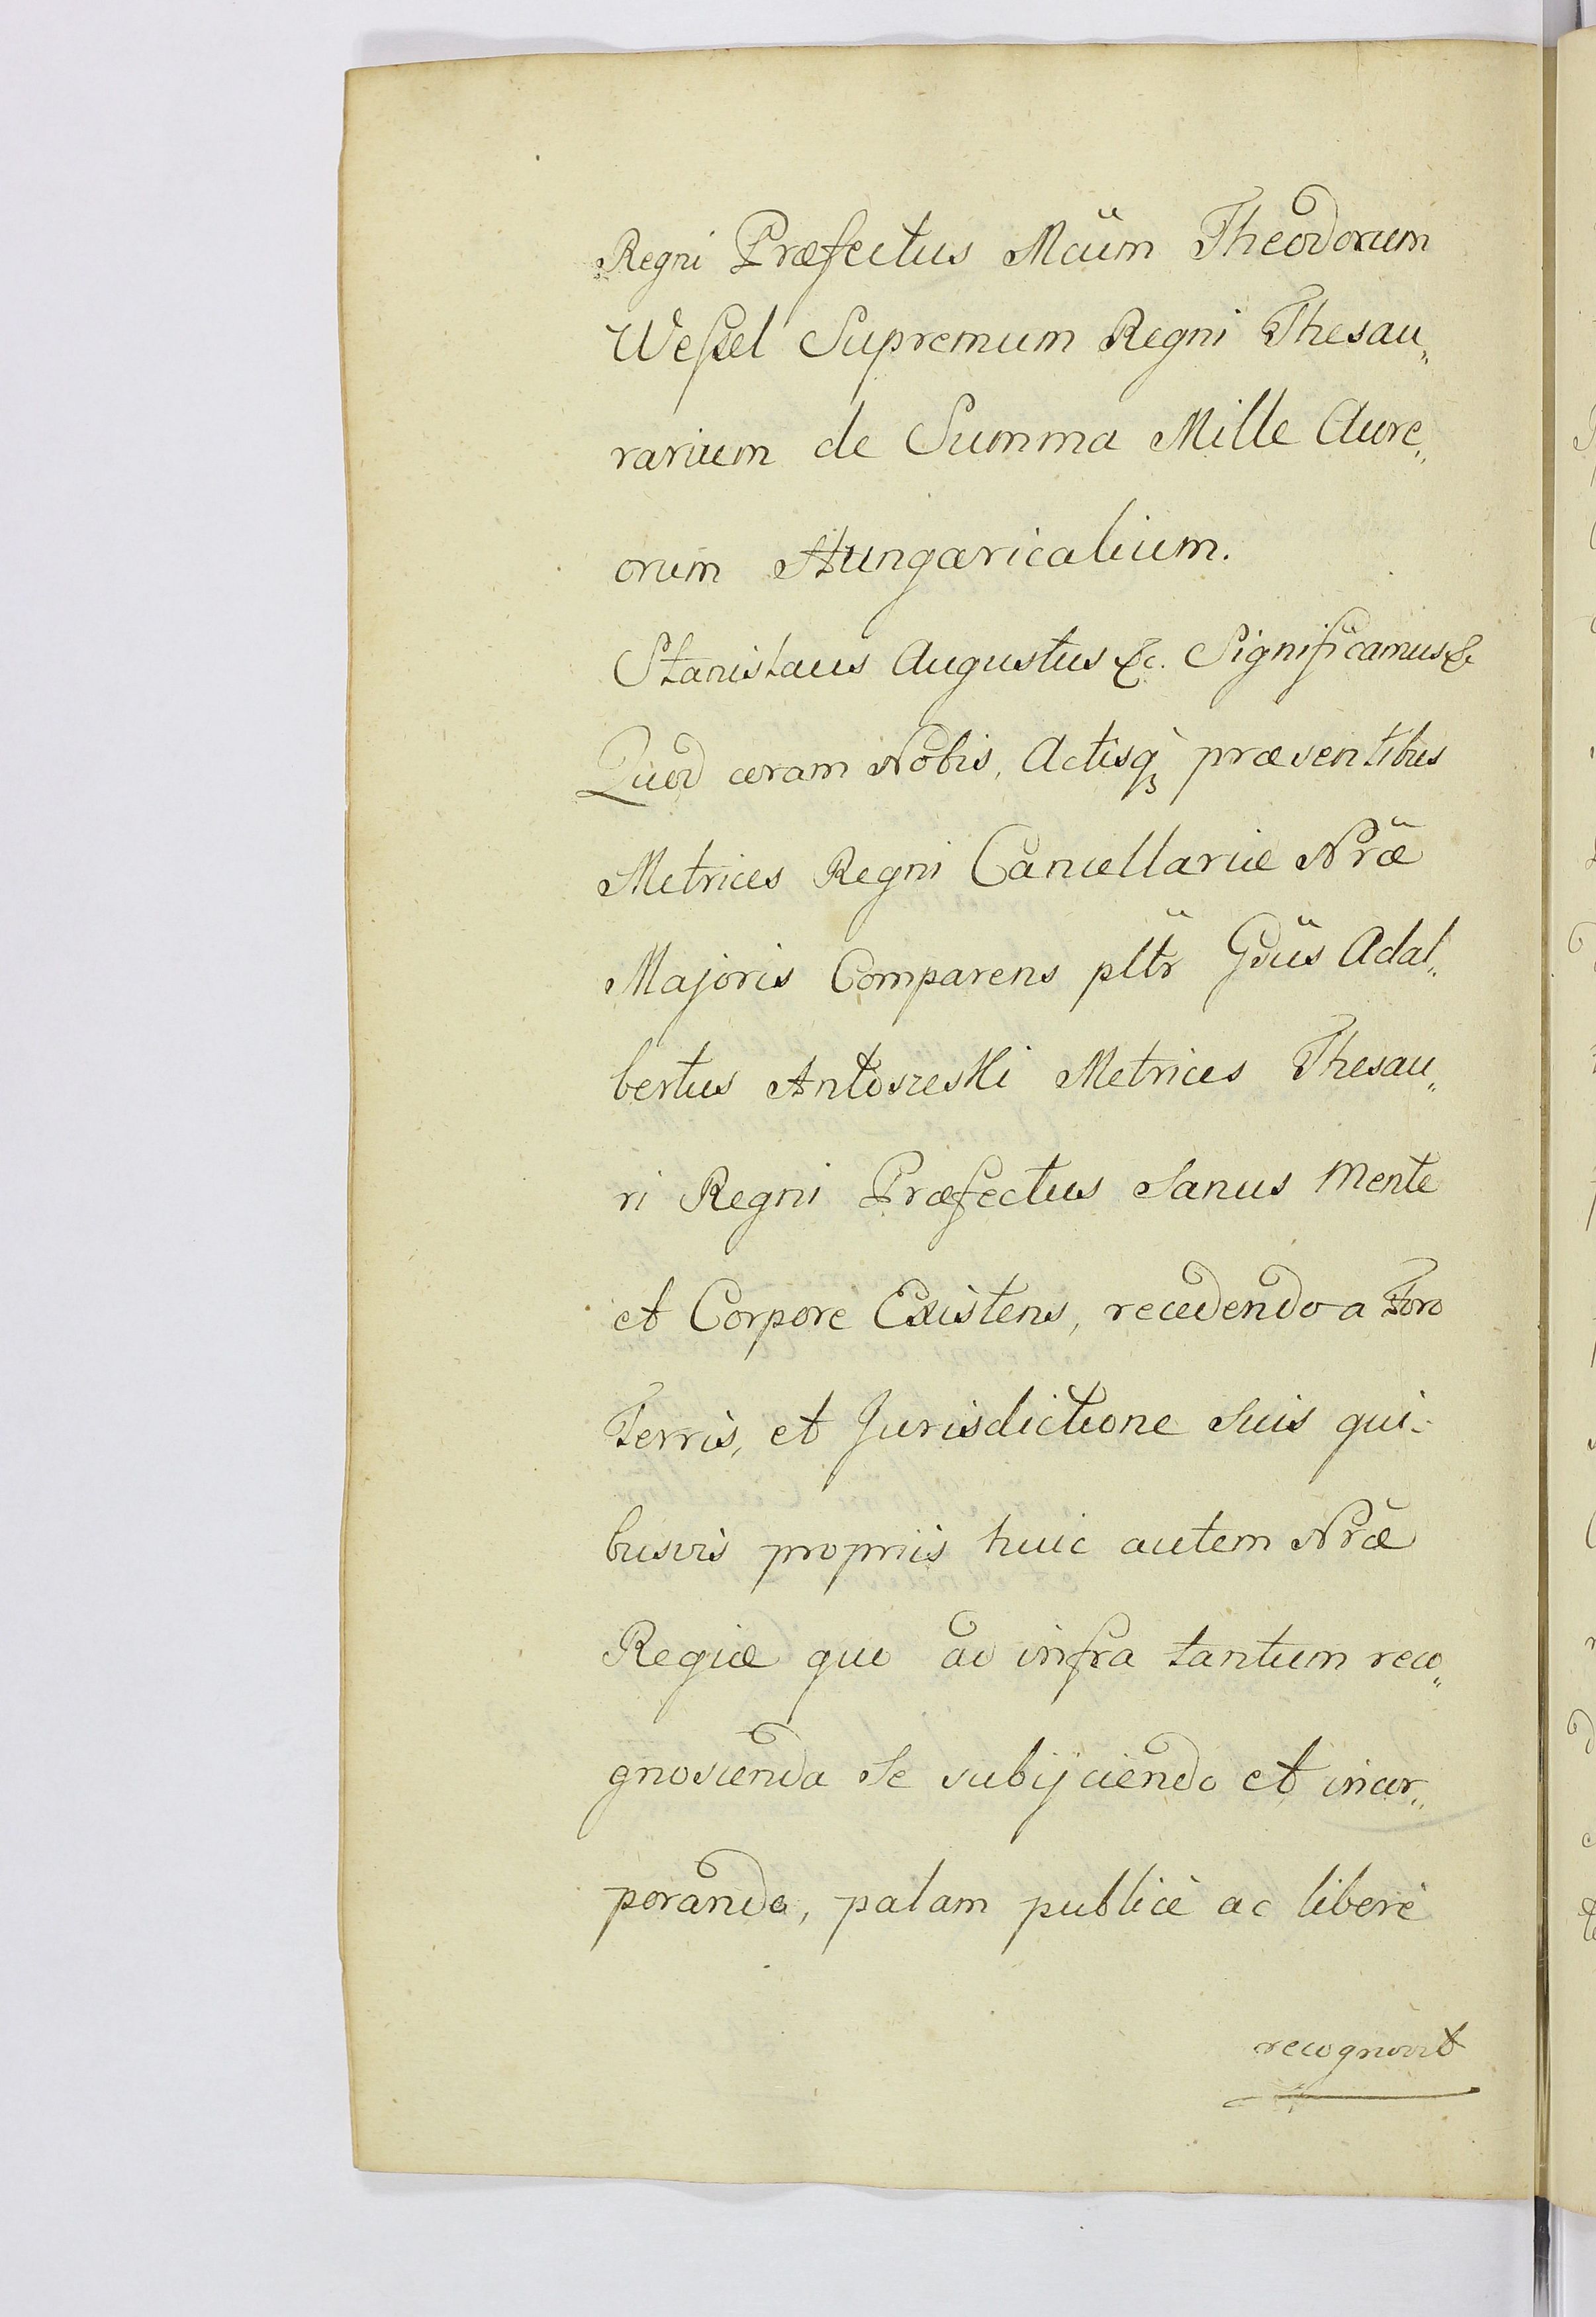 Regni Præfectus Mcüm Theodorum
Weſsel Supremum Regni Thesau„
rarium de Summa Mille Aure„
orum Hungaricalium.
Stanislaus Augustus &c. Significamus &
Quod coram Nobis, Actisq̀ præsentibus
Metrices Regni Cancellariæ Nræ
Majoris Comparens pltr Gdüs Adal„
bertus Antoszeski Metrices Thesau„
ri Regni Præfectus Sanus Mente
et Corpore Existens, recedendo a Foro
Terris, et Jurisdictione Suis qui-
busvis propriis huic autem Nræ
Regiæ quo ad infra tantum reco„
gnoscenda Se subijciendo et incor„
porando, palam publicè ac liberè
recognovit